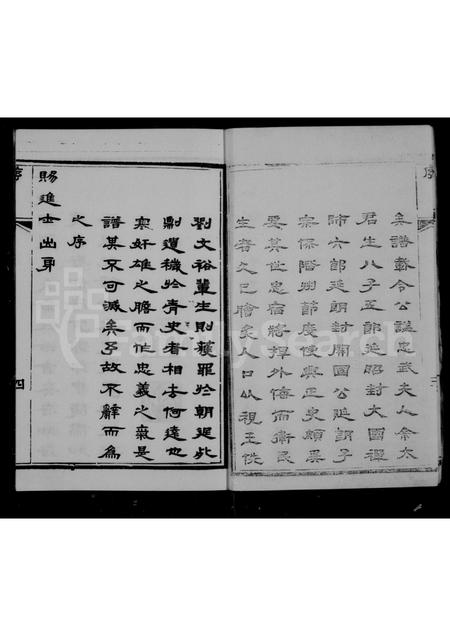 矣譜載令公諡忠武夫人佘太
君生八子五郎延昭封大國禪
師六郎延朗封開國公延朗子
宗保階州節度使與正史頗異
要其世忠宿將捍外侮而衛民
生者久已膾炙人口以視王侁
劉文裕輩生則獲罪於朝廷死
則遺穢於青史者相去何遠也
寒奸雄之膽而作忠義之氣是
譜其不可滅矣予故不辭而為
之序
賜進士出身
序
四
序
三
FamilySearch